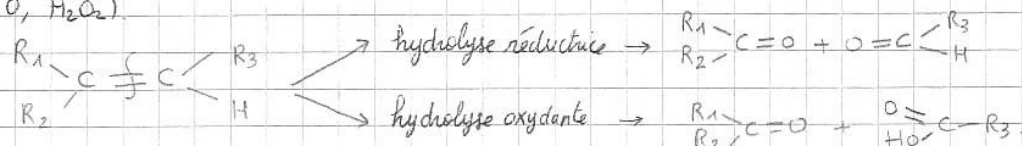 O, H2O2).
R1 R2 C = C R3 H → hydrolyse réductrice → R1 R2 C = O + O = C R3 H
→ hydrolyse oxydante → R1 R2 C = O + O HO C - R3